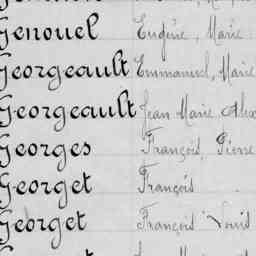 Genouel Eugène, Marie
Georgeault Emmanuel, Marie
Georgeault Jean Marie Alex
Georges François, Pierre
Georget François
Georget François Louis